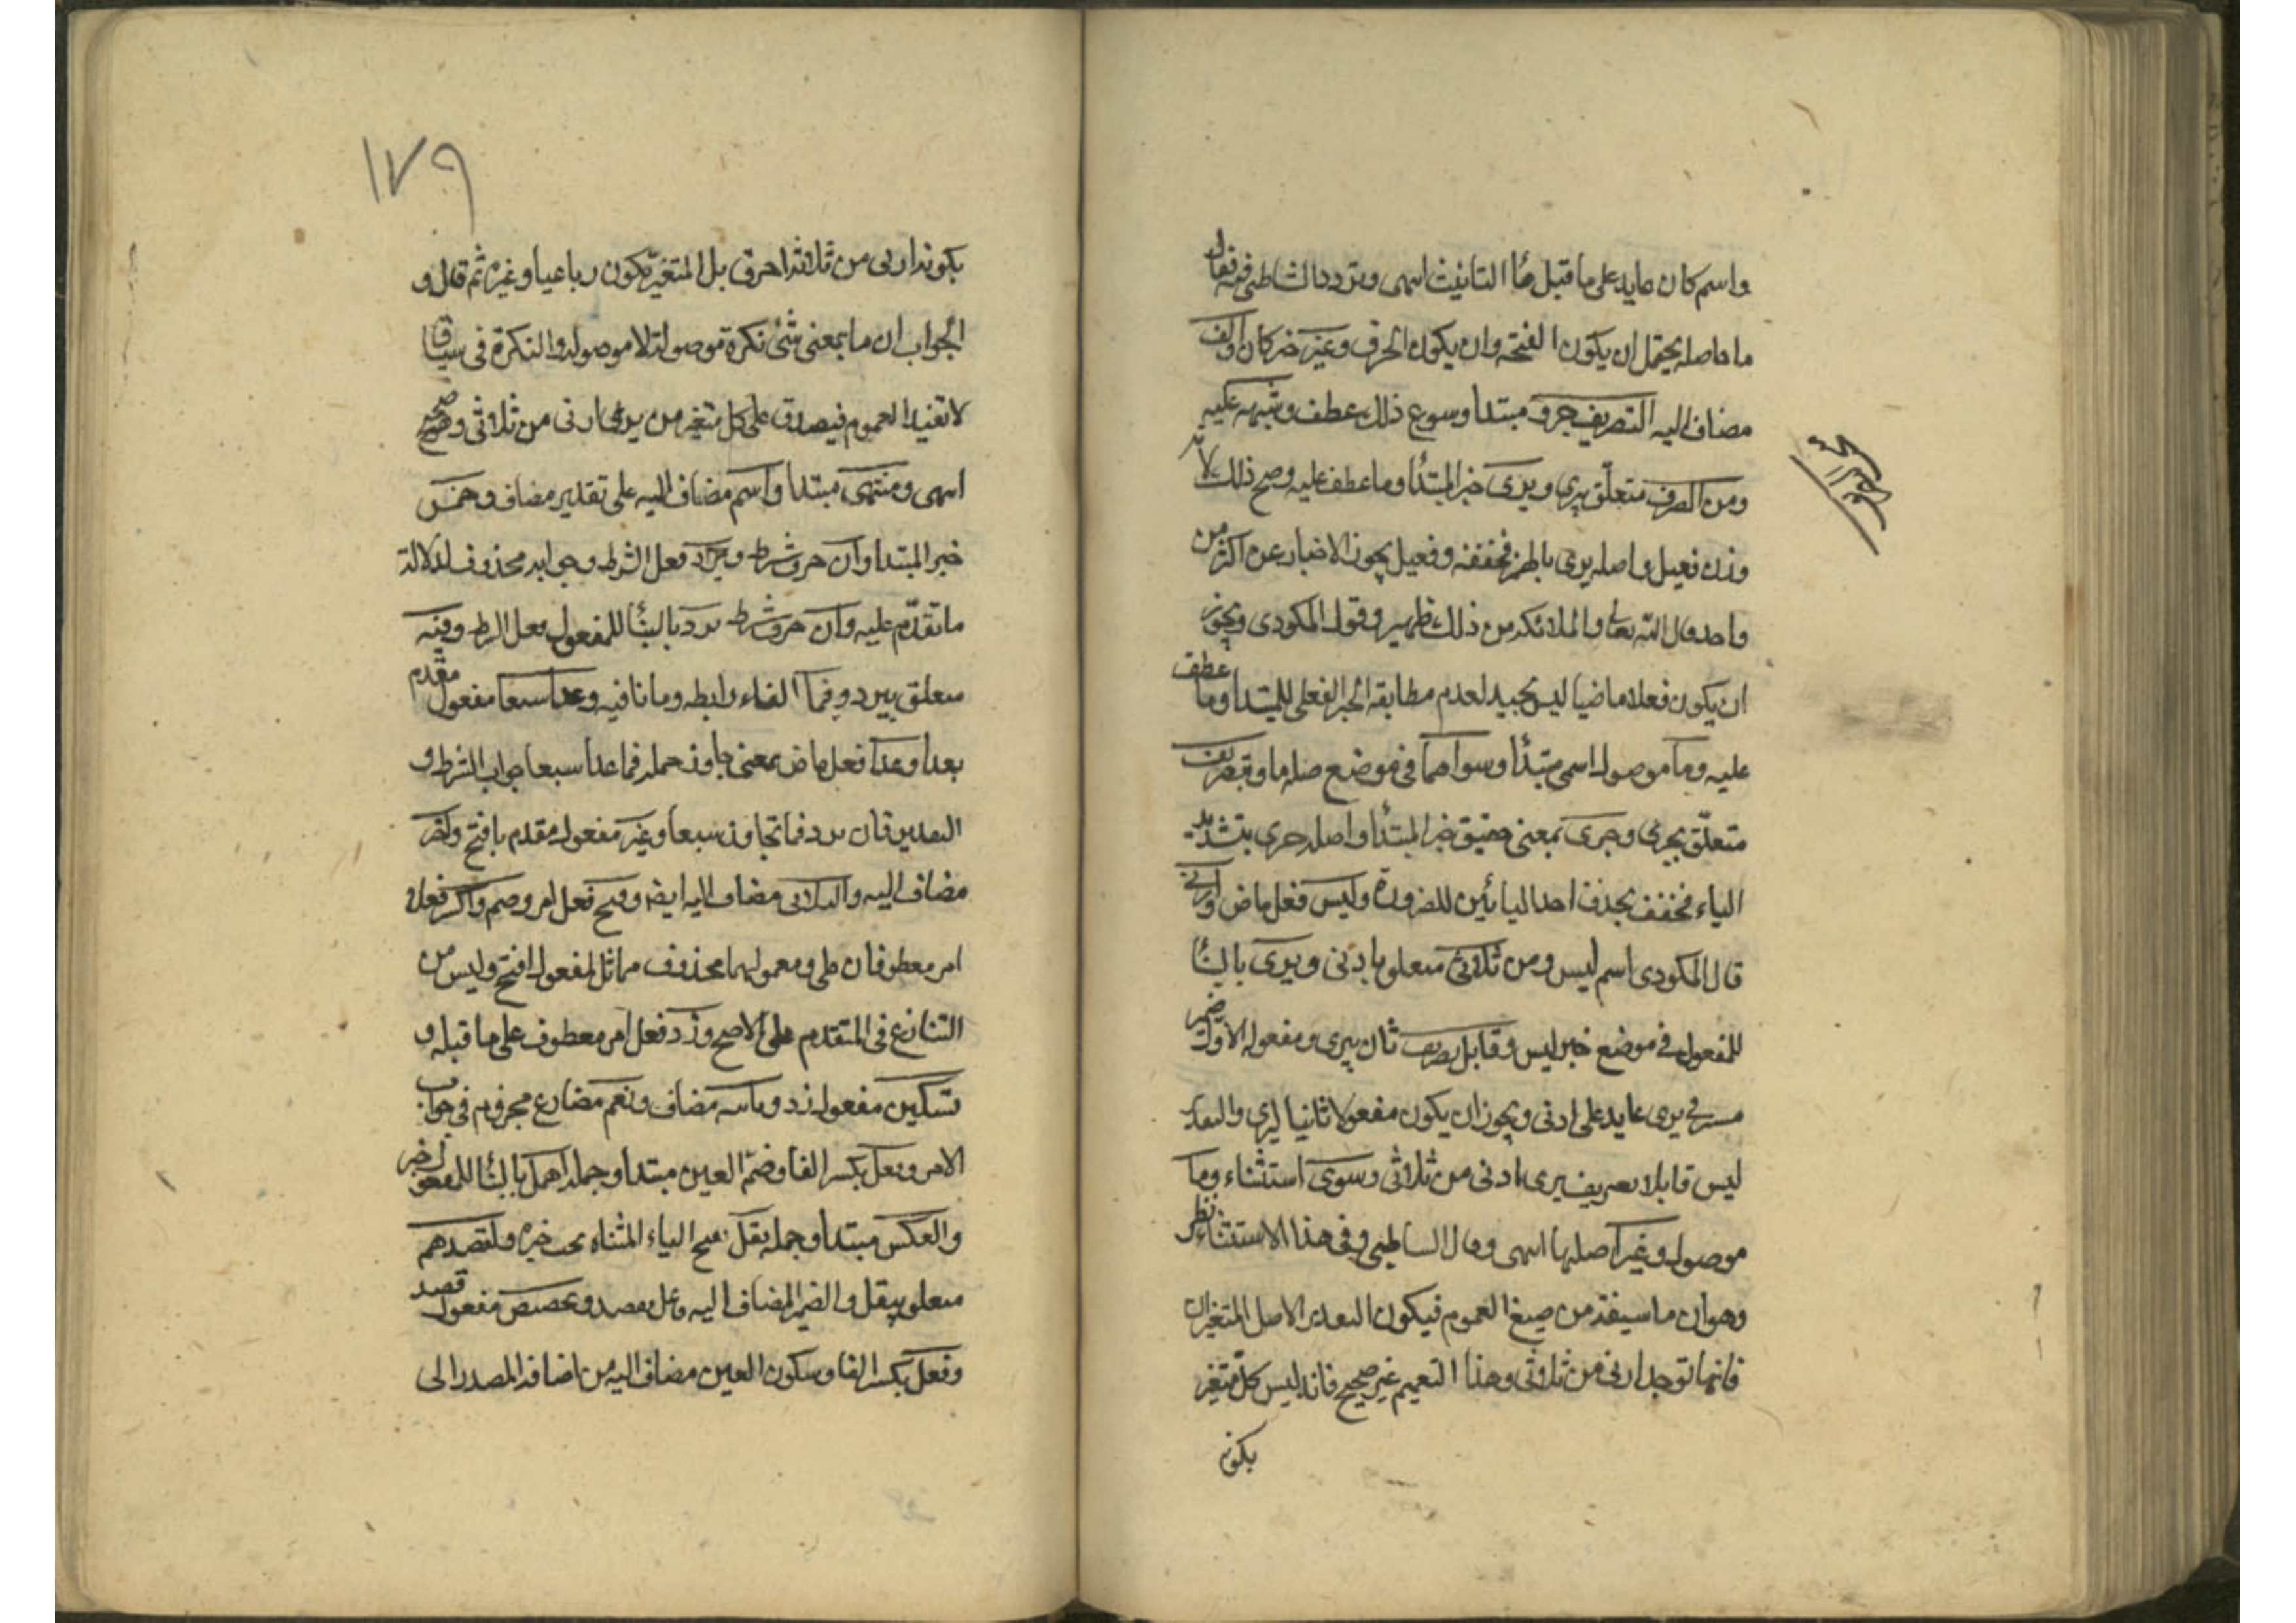 واسم كان عايد على ما قبل هاء التانيث اسمى وتردد الشاطبى فيه فقال
ما حاصله يحتمل ان يكون الفتحة وان يكون الحرف وغير خبر كان والف
مضاف اليه التصريف حرف مبتدا وسوغ ذلك عطف وشبهه عليه
ومن الصرف متعلق ببرى وبرى خبر المبتدأ وما عطف عليه وصح ذلك لانه
وزن فعيل واصله برىء بالهمز فخففه وفعيل يجوز الاخبار عن اكثر من
واحد قال الله تعالى والملائكة بعد ذلك ظهير وقول المكودى ويجوز
ان يكون فعلا ماضيا ليس بجيد لعدم مطابقة الخبر الفعلى للمبتدا وما عطف
عليه وما موصول اسمى مبتدأ وسواهما فى موضع صله ما وبتصريف
متعلق بحرى وحرى بمعنى حقيق خبر المبتدأ واصله حرى بتشديد
الياء فخفف بحذف احد اليائين للضرورة وليس فعل ماض وادنى
قال المكودى اسم ليس ومن ثلاثى متعلق بادنى ويرى بالبنا
للمفعول فى موضع خبر ليس وقابل تصريف ثان ليرى ومفعوله الاول ضمير
مستتر فى يرى عايد على ادنى ويجوز ان يكون مفعولا ثانيا ليرى والتقدير
ليس قابلا تصريف يرى ادنى من ثلاثى وسوى استثناء وما
موصول وغيرا صلتها اسمى وقال الشاطبى وفى هذا الاستثناء نظر
وهو ان ما سيقه من صيغ العموم فيكون التقدير الاصل المتغير ان
فانها توجد ادنى من ثلاثى وهذا التعميم غير صحيح فانه ليس كل متغير
بكونه
١٧٩
بكونه ادنى من ثلاثة احرف بل المتغير يكون رباعيا وغيره ثم قال و
الجواب ان ما بمعنى شئ نكرة موصوفة لا موصوله والنكرة فى سياق
لا تفيد العموم فيصدق على كل متغير من يرى ادنى من ثلاثى وهو صحيح
اسمى ومنتهى مبتدا واسم مضاف اليه على تقدير مضاف وخمس
خبر المبتدا وان حرف شرط ويزد فعل الشرط وجوابه محذوف لدلالة
ما تقدم عليه وان حرف شرط يزد بالبنا للمفعول فعل الشرط وفيه
متعلق بيزد وفما الفاء رابطه وما نافيه وعدا سبعا مفعول مقدم
بعدا وعدا فعل ماض بمعنى جاوز حمله فما عدا سبعا جواب الشرط و
التقدير فان يزد فما تجاوز سبعا وغير مفعول مقدم بافتح واخر
مضاف اليه والثلاثى مضاف اليه ايضا وافتح فعل امر وضم واكسر فعلا
امر معطوفان على ومعمولهما محذوف مماثل لمفعول افتح وليس من
التنازع فى المتقدم على الاصح وزد فعل امر معطوف على ما قبله و
تسكين مفعول زد وثانيه مضاف وتعم مضارع مجزوم فى جواب
الامر وفعل بكسر الفا وضم العين مبتدا وجملة اهمل بالبنا للمفعول خبر
والعكس مبتدا وجمله يقل بفتح الياء المثناه تحت خبره ولقصدهم
متعلق بيقل والضمير المضاف اليه فاعل بقصد وتخصيص مفعول قصد
وفعل بكسر الفا وسكون العين مضاف اليه من اضافة المصدر الى